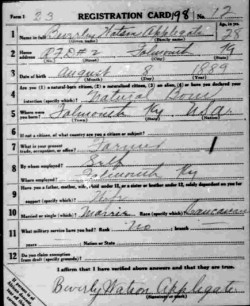 Form 1 23 REGISTRATION CARD 98 No. 12
1 Name in full Beverly Watson Applegate Age, in yrs. 28
2 Home address R.F.D. #2 Falmouth Ky
3 Date of birth August 8 1889
4 Are you (1) a natural-born citizen, (2) a naturalized citizen, (3) an alien, (4) or have you declared your intention (specify which)? Natural Born
5 Where were you born? Falmouth Ky USA
6 If not a citizen, of what country are you a citizen or subject?
7 What is your present trade, occupation, or office? Farmer 1
8 By whom employed? Self
Where employed? Falmouth Ky
9 Have you a father, mother, wife, child under 12, or a sister or brother under 12, solely dependent on you for support (specify which)? Wife
10 Married or single (which)? Married Race (specify which)? Caucasian
11 What military service have you had? Rank No ; branch
years ; Nation or State
12 Do you claim exemption from draft (specify grounds)?
I affirm that I have verified above answers and that they are true.
Beverly Watson Applegate
(Signature or mark)